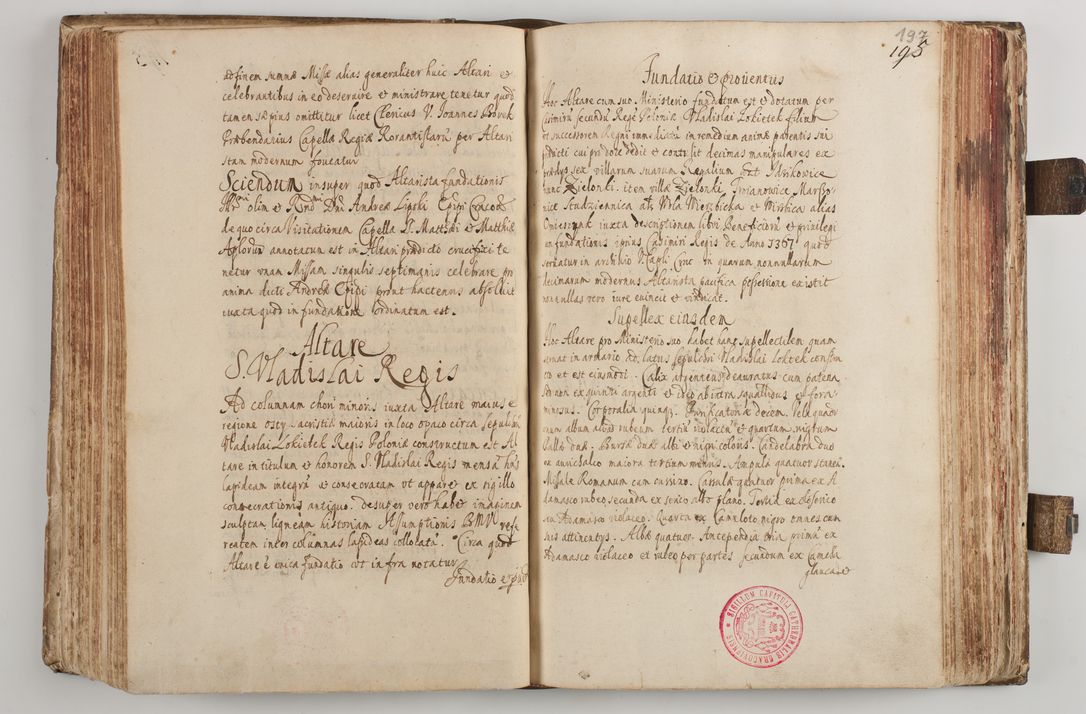 ad finem summæ Missæ alias generaliter huic Altari et
celebrantibus in eo deseruire et ministrare tenetur quod
tamen sæpius omittitur licet Clericus V. Joannes Borek
Præbendarius Capellæ Regiæ Rorantistarū per Altari
stam modernum foueatur
Sciendum insuper quod Altarista fundationis
olim et Rndmi Dni Andreæ Lipski Epipi Cracou
de quo circa Visitationem Capellæ S. Matthæi et Matthiæ
Aplorum annotatum est in Altari prædicto crucifixi te
netur vnam Missam singulis septimanis celebrare pro
anima dicti Andreæ Epipi prout hactenus absoluit
iuxta quod in fundatione ordinatum est.
Altare
S. Vladislai Regis
Ad columnam chori minoris iuxta Altare maius e
regione ostij sacristiæ maioris in loco opaco circa sepulchrū
Vladislai Lokietek Regis Poloniæ constructum est Al
tare in titulum et honorem S. Vladislai Regis mensā hñs
lapideam integrā et consecratam vt apparet ex sigillo
consecrationis antiquo. desuper vero habet imaginem
sculptam ligneam historiam Assumptionis BMV refe
rentem inter columnas lapideas collocatā. Circa quod
Altare è vnica fundatio vt infra notatur
Fundatio et pro
197
195
Fundatio et prouentus
Hoc Altare cum suo Ministerio fundatum est et dotatum per
Casimirū secundū Regē Poloniæ Vladislai Lokietek filium
et successorem Regni immediatū in remedium animæ parentis sui
prædicti cui pro dote dedit et contulit decimas manipulares ex
prædijs sex villarum suarum Regalium
nunc Zielonki. item villæ Zielonki, Troianowice Marszo
nice Studziennica als Wola Wierzbicka et Mirkica alias
iuxta descriptionem libri Beneficiorū et priuilegi
fundationis ipsius Casimiri Regis de Anno 1367 quod
seruatur in archiuio Vcapli Crac in quarum nonnullarum
decimarum modernus Altarista pacifica possessione existit
nonnullas vero iure euincit et vindicat.
Supellex eiusdem
Hoc Altare pro Ministerio suo habet hanc supellectilem quam
seruat in armario ad latus sepulchri Vladislai Loktek constru
cto et est eiusmodi. Calix argenteus deauratus cum patena
et fora
minosus. Corporalia quinq;. Purificatoria decem. Vela quatuor
vnum album aliud rubeum tertiū violaceū et quartum nigrum
Pallæ duæ. Bursæ duæ albi et nigri coloris. Candelabra duo
ex aurichalco maiora tertium minus. Ampulæ quatuor staneæ.
Missale Romanum cum cussino. Casulæ quatuor prima ex A
damasco rubeo, secunda ex serico albo plano. Tertia ex
Adamasco violaceo. Quarta ex Cameloto nigro omnes cum
suis attinentijs. Albæ quatuor. Antependia tria primū ex
Adamasco violaceo et rubeo per partes secundum ex Camcha
glauca et
SIGILLUM CAPITULI CATHEDRALIS CRACOVIENSIS